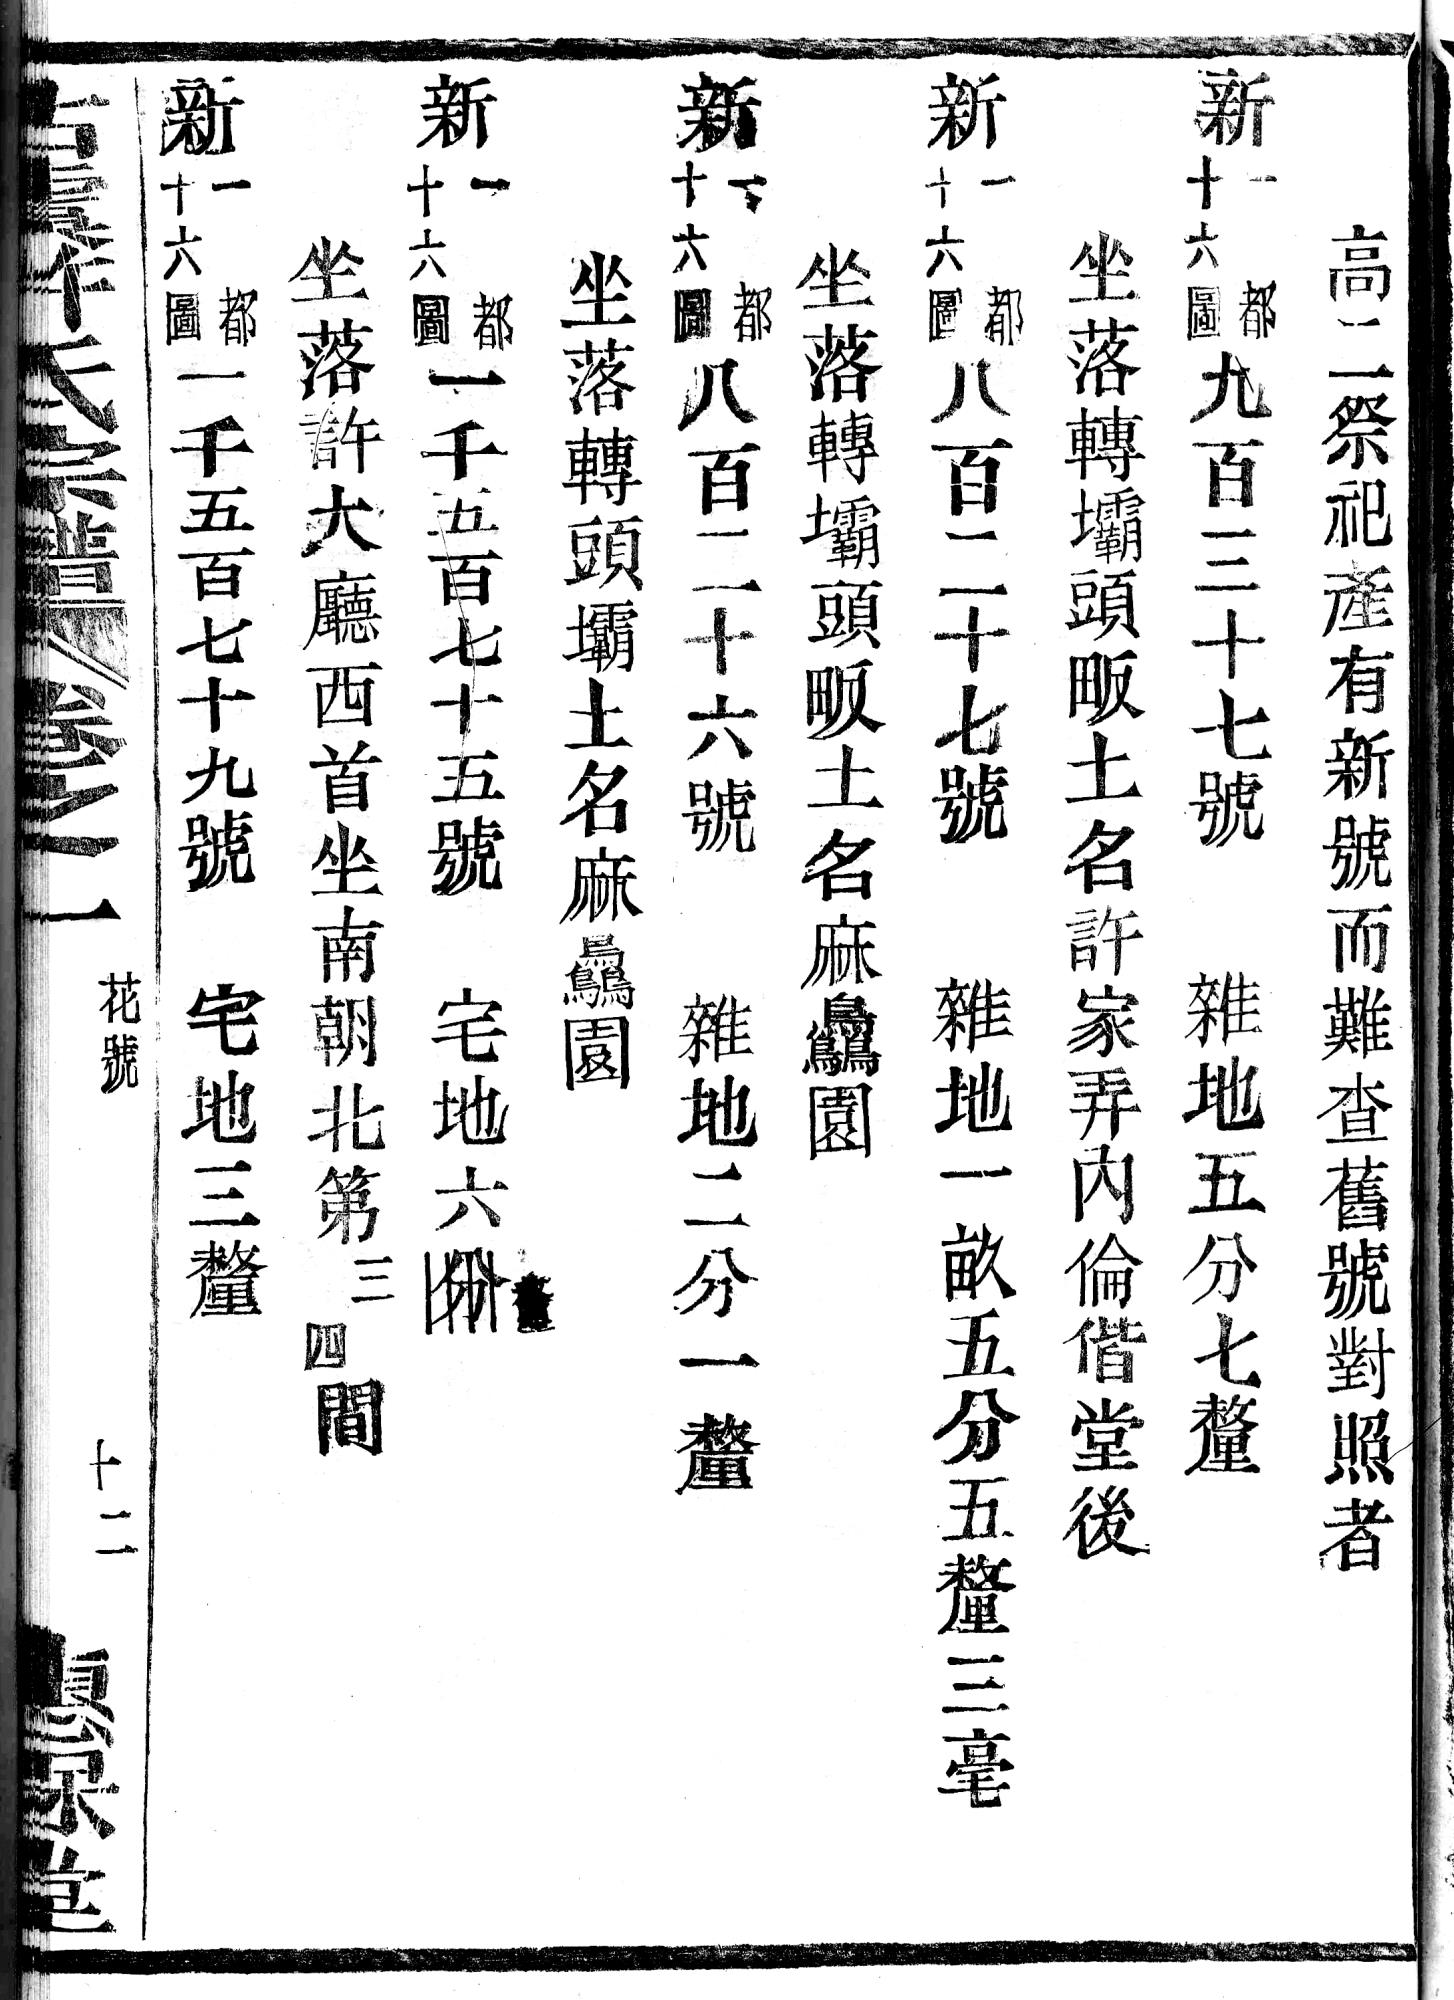 高二祭祀產有新號而難查舊號對照者
新一都十六圖九百三十七號 雜地五分七釐
坐落轉壩頭畈土名許家弄內倫偕堂後
新一都十六圖八百二十七號 雜地一畝五分五釐三毫
坐落轉壩頭畈土名麻園
新一都十六圖八百二十六號 雜地二分一釐
坐落轉頭壩土名麻園
新一都十六圖一千五百七十五號 宅地六
坐落許大廳西首坐南朝北第三四間
新一都十六圖一千五百七十九號 宅地三釐
氏宗譜 卷之一 花號 十二 堂